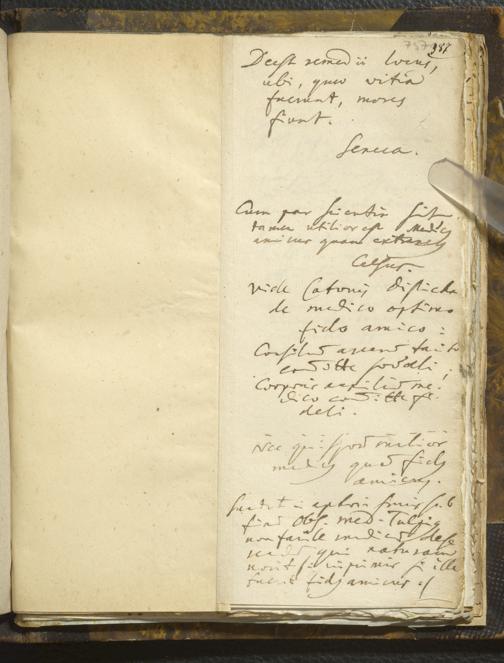 757 957
Deest remedii locus,
ubi, quae vitia
fuerunt, mores
fiunt.
Seneca.
Cum par scientia sit
tamen utilior est medicus
amicus quam extraneus
Celsus.
vide Catonis disticha
de medico optimo
fido amico :
Consilium arcanum tacito
committe sodali,
Corporis auxilium me-
dico committe fi-
deli.
Nec quisquam melior
medicus quam fidus
amicus.
sub
finem Obs. med. Tulpij
non facile medicum
qui naturam
novit
fuerit fidus amicus